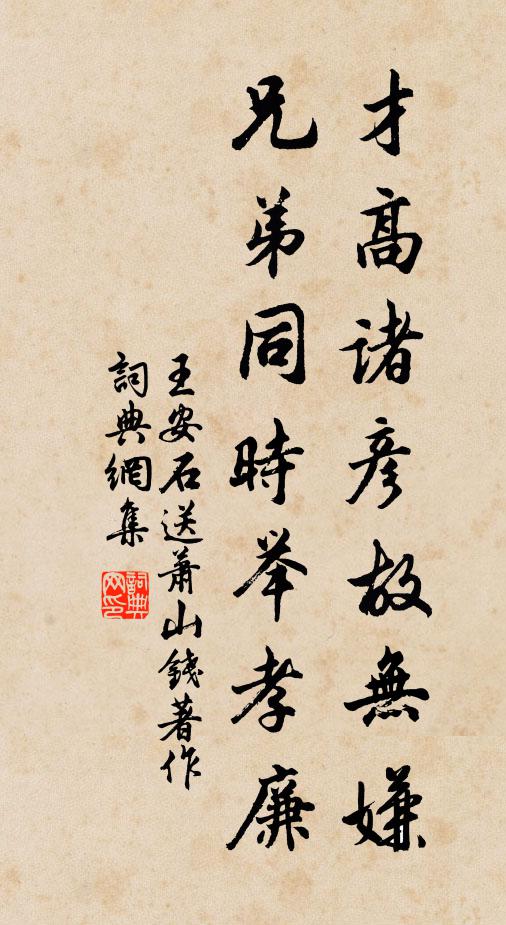 才高諸彦故無嫌
兄弟同時举孝廉
王安石送萧山錢著作
詞典網集
詞典網印